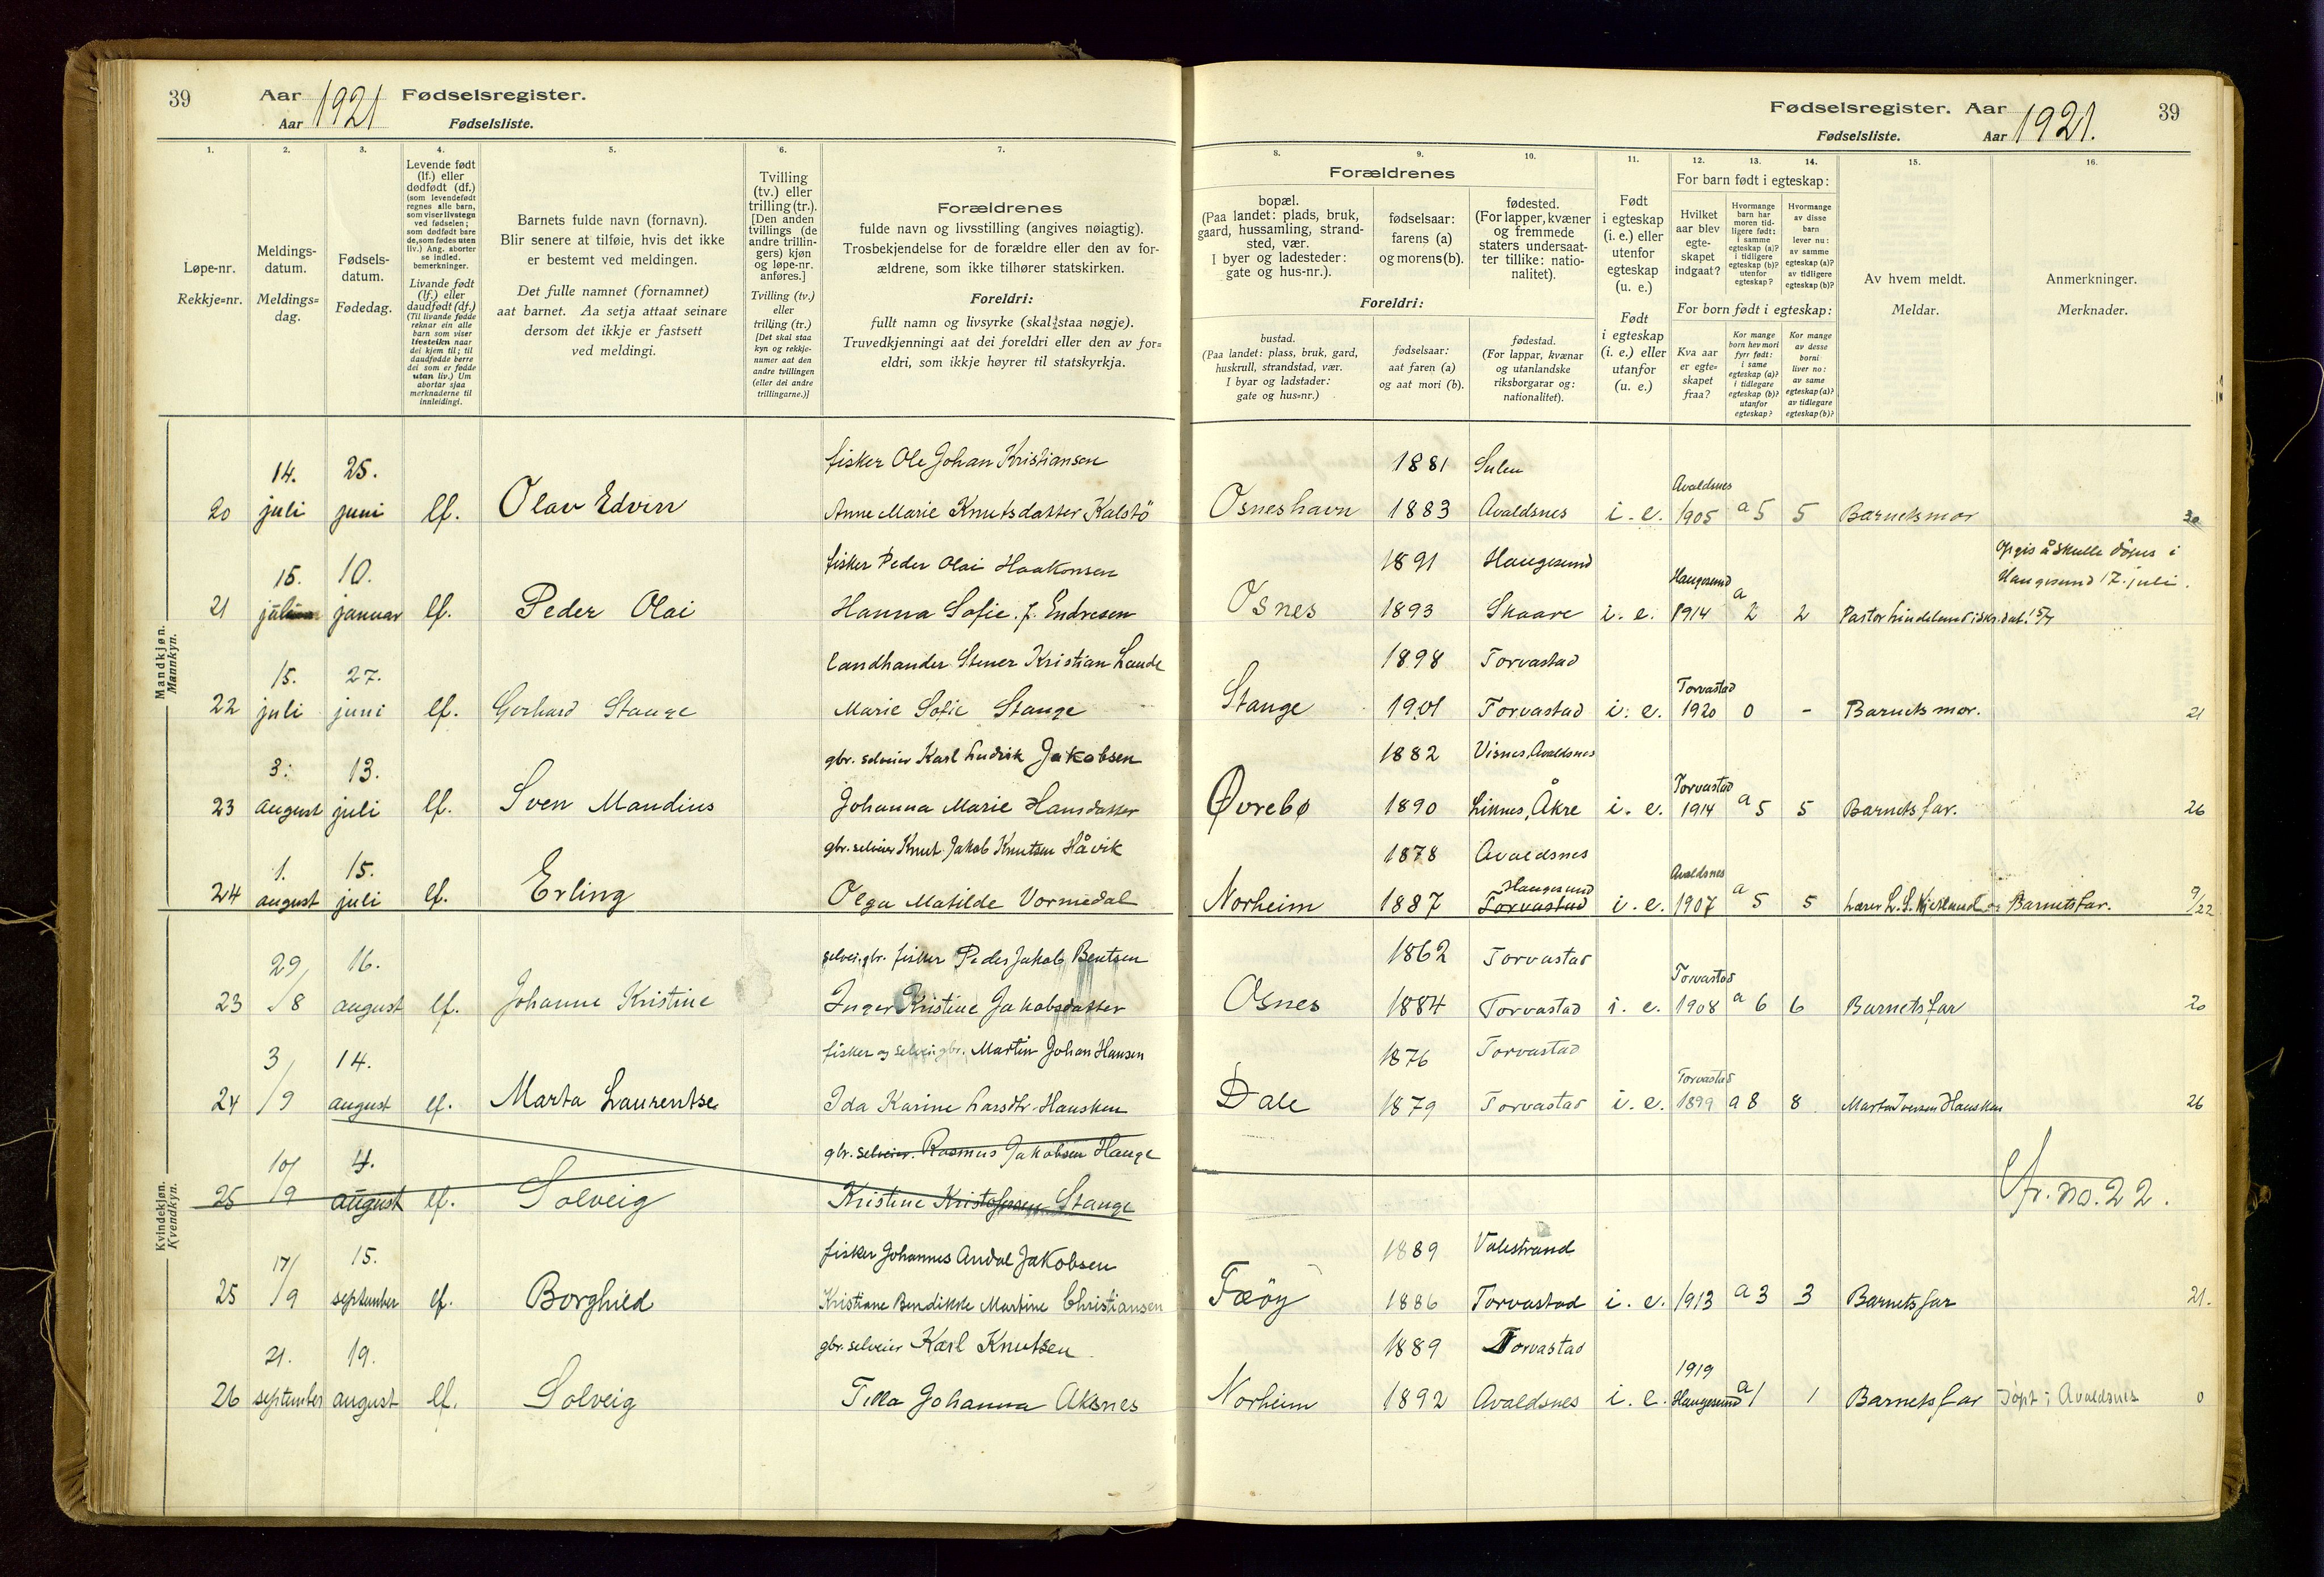 39 Aar 1921 Fødselsregister.
Aar Fødselsliste.
Fødselsregister. Aar 1921. 39
Fødselsliste. Aar
1. 2. 3. 4. 5. 6. 7.
Løpe-nr.
Rekkje=nr.
Meldings-
datum.
Meldings=
dag.
Fødsels-
datum.
Fødedag.
Levende født
(lf.) eller
dødfødt (df.)
(som levendefødt
regnes alle barn,
som viser livstegn
ved fødselen;
som dødfødt bare
de, som fødes uten
liv.) Ang. aborter
se indled.
bemerkninger.
Livande født
(lf.) eller
daudfødt (df.)
(Til livande fødde
reknar ein alle
barn som viser
livsteikn naar
dei kjem til; til
daudfødde berre
dei som er fødde
utan liv.) Um
abortar sjaa
merknaderne til
innleidingi.
Barnets fulde navn (fornavn).
Blir senere at tilføie, hvis det ikke
er bestemt ved meldingen.
Det fulle namnet (fornamnet)
aat barnet. Aa setja attaat seinare
dersom det ikkje er fastsett
ved meldingi.
Tvilling
(tv.) eller
trilling (tr.).
[Den anden
tvillings (de
andre trillin-
gers) kjøn
og løpe-nr.
anføres.]
Tvilling (tv.)
eller
trilling (tr.)
[Det skal staa
kyn og rekkje-
numer aat den
andre tvillingen
(eller dei andre
trillingarne.)]
Forældrenes
fulde navn og livsstilling (angives nøiagtig).
Trosbekjendelse for de forældre eller den av for-
ældrene, som ikke tilhører statskirken.
Foreldri:
fullt namn og livsyrke (skal staa nøgje).
Truvedkjenningi aat dei foreldri eller den av for=
eldri, som ikkje høyrer til statskyrkja.
8. 9. 10. 11. 12. 13. 14. 15. 16.
Forældrenes
bopæl.
(Paa landet: plads, bruk,
gaard, hussamling, strand-
sted, vær.
I byer og ladesteder:
gate og hus-nr.).
fødselsaar:
farens (a)
og morens (b).
fødested.
(For lapper, kvæner
og fremmede
staters undersaat-
ter tillike: natio-
nalitet).
Foreldri:
bustad.
(Paa landet: plass, bruk, gard,
huskrull, strandstad, vær.
I byar og ladstader:
gate og hus=nr.)
fødselsaar:
aat faren (a)
og aat mori (b).
fødestad.
(For lappar, kvænar
og utanlandske
riksborgarar og:
nationalitet).
Født
i egteskap
(i. e.) eller
utenfor
egteskap
(u. e.)
Født
i egteskap
(i. e.) eller
utanfor
(u. e.)
For barn født i egteskap:
Hvilket
aar blev
egte-
skapet
indgaat?
Hvormange
barn har
moren tid-
ligere født:
i samme
egteskap (a)?
i tidligere
egteskap (b)?
utenfor
egteskap?
Hvormange
av disse
barn
lever nu:
av samme
egteskap (a)?
av tidligere
egteskap (b)?
For born født i egteskap:
Kva aar
er egte=
skapet
fraa?
Kor mange
born hev mori
fyrr født:
i same
egteskap (a)?
i tidlegare
egteskap (b)?
utanfor
egteskap?
Kor mange
av desse
borni
liver no:
av same
egteskap (a)?
av tidlegare
egteskap (b)?
Av hvem meldt.
Meldar.
Anmerkninger.
Merknader.
Mandkjøn.
Mannkyn.
14. 25. fisker Ole Johan Kristiansen 1881 Sulen
20 juli juni lf. Olav Edvin Anne Marie Knutsdatter Kalstö Osneshavn 1883 Avaldsnes i. e. Avaldsnes 1905 a 5 5 Barnets mor 30
15. 10. fisker Peder Olai Haakonsen 1891 Haugesund Opgis å skulle döpes i
Haugesund 17. juli.
21 juli januar lf. Peder Olai Hanna Sofie f. Endresen Osnes 1893 Skaare i. e. Haugesund 1914 a 2 2 Pastor
15. 27. landhandler Stener Kristian Lande 1898 Torvastad
22 juli juni lf. Gerhard Stange Marie Sofie Stange Stange 1901 Torvastad i. e. Torvastad 1920 0 - Barnets mor. 21
3. 13. gbr. selveier Karl Ludvik Jakobsen 1882 Visnes, Avaldsnes
23 august juli lf. Sven Mandius Johanna Marie Hansdatter Øvrebø 1890 Liknes, Åkre i. e. Torvastad 1914 a 5 5 Barnets far. 26
1. 15. gbr. selveier Knut Jakob Knutsen Håvik 1878 Avaldsnes
24 august juli lf. Erling Olga Matilde Vormedal Norheim 1887 Haugesund Torvastad i. e. Avaldsnes 1907 a 5 5 Lærer L. S. Kjerland og Barnets far. 9/22
Kvindekjøn.
Kvendkyn.
29/8 16. selvei. gbr. fisker Peder Jakob Bentsen 1862 Torvastad
23 august lf. Johanne Kristine Inger Kristine Jakobsdatter Osnes 1884 Torvastad i. e. Torvastad 1908 a 6 6 Barnets far 20
3/9 14. fisker og selvei. gbr. Martin Johan Hansen 1876 Torvastad
24 august lf. Marta Laurentse Ida Karine Larsdtr. Hausken Dale 1879 Torvastad i. e. Torvastad 1899 a 8 8 Marta Iversen Hausken 26
10/9 4. gbr. selveier. Rasmus Jakobsen Hauge
25 august lf. Solveig Kristine Kristofersen Stange Cfr. no. 22.
17/9 15. fisker Johannes Andal Jakobsen 1889 Valestrand
25 september lf. Borghild Kristiane Bendikke Martine Christiansen Fæöy 1886 Torvastad i. e. 1913 a 3 3 Barnets far 21.
21. 19. gbr. selveier Karl Knutsen 1889 Torvastad
26 september august lf. Solveig Tilla Johanna Aksnes Norheim 1892 Avaldsnes i. e. 1919 Haugesund a 1 1 Barnets far Döpt i Avaldsnes 0